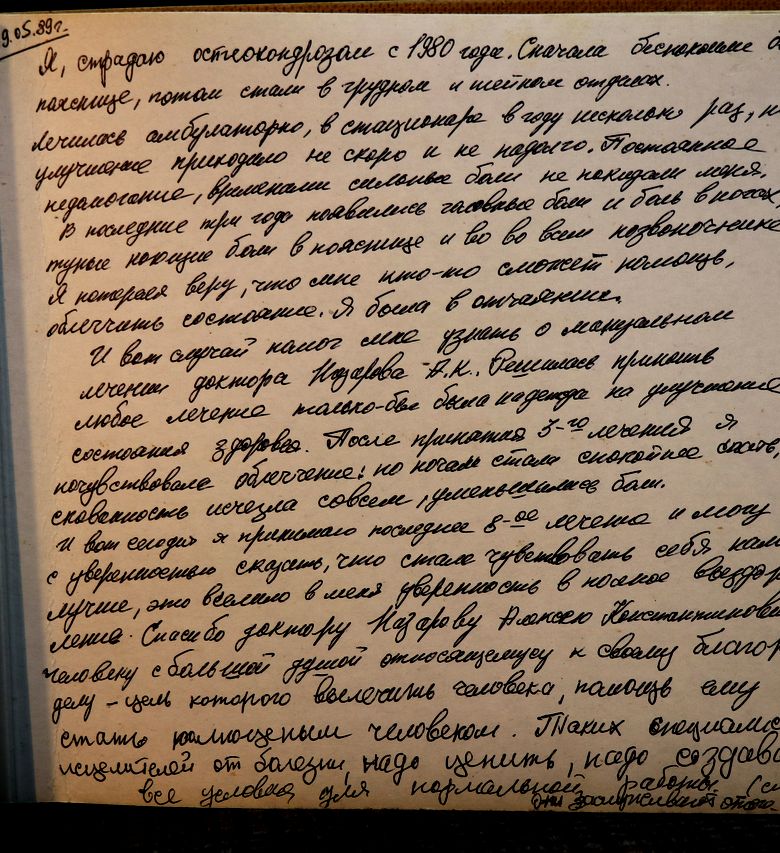 9.05.89г.
Я, страдаю остеохондрозом с 1980 года. Сначала беспокоили б
пояснице, потом стали в грудном и шейном отделах.
Лечилась амбулаторно, в стационаре в году несколько раз, н
улучшение приходило не скоро и не надолго. Постоянное
недомогание, временами сильные боли не покидали меня.
В последние три года появились головные боли и боль в ногах,
тупые ноющие боли в пояснице и во во всем позвоночнике
Я потеряла веру, что мне кто-то сможет помощь,
облегчить состояние. Я была в отчаянии.
И вот случай помог мне узнать о мануальном
лечении доктора Назарова А.К. Решилась принять
любое лечение только-бы была надежда на улучшение
состояния здоровья. После принятия 3-го лечения я
почувствовала облегчение: по ночам стала спокойнее спать,
скованность исчезла совсем, уменьшились боли.
И вот сегодня я принимаю последнее 8-ое лечение и могу
с уверенностью сказать, что стала чувствовать себя нам
лучше, это вселило в меня уверенность в полное выздор
ления. Спасибо доктору Назарову Алексею Константинови
человеку с большой душой относящемуся к своему благор
делу - цель которого вылечить человека, помощь ему
стать полноценым человеком. Таких специалис
исцелителей от болезни, надо ценить, надо создава
все условия для нормальной работы
они заслуживают этого